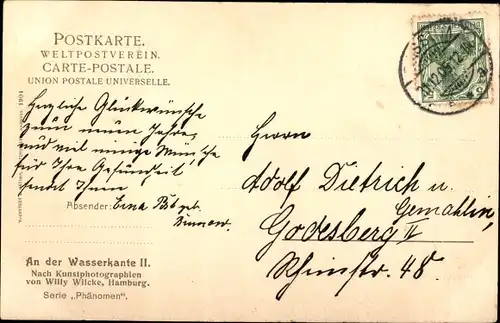 POSTKARTE.
WELTPOSTVEREIN.
CARTE-POSTALE.
UNION POSTALE UNIVERSELLE.
Herzliche Glückwünsche
zum neuen Jahre,
und viel innige Wünsche
für Ihre Gesundheit
sendet Ihnen
Absender: Erna
1904
Herrn
Adolf Dietrich u.
Gemahlin,
Godesberg
Rheinstr. 48.
An der Wasserkante II.
Nach Kunstphotographien
von Willy Wilcke, Hamburg.
Serie „Phänomen".